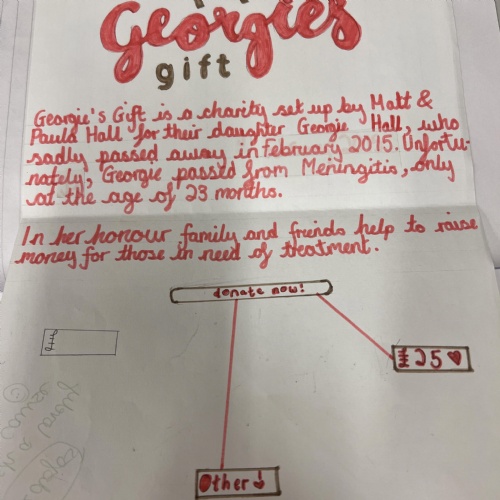 Georgies
gift
Georgie's Gift is a charity set up by Matt &
Paula Hall for their daughter Georgie Hall, who
sadly passed away in February 2015. Unfortu-
nately, Georgie passed from Meningitis, only
at the age of 23 months.
In her honour family and friends help to raise
money for those in need of treatment.
donate now!
£25
Other